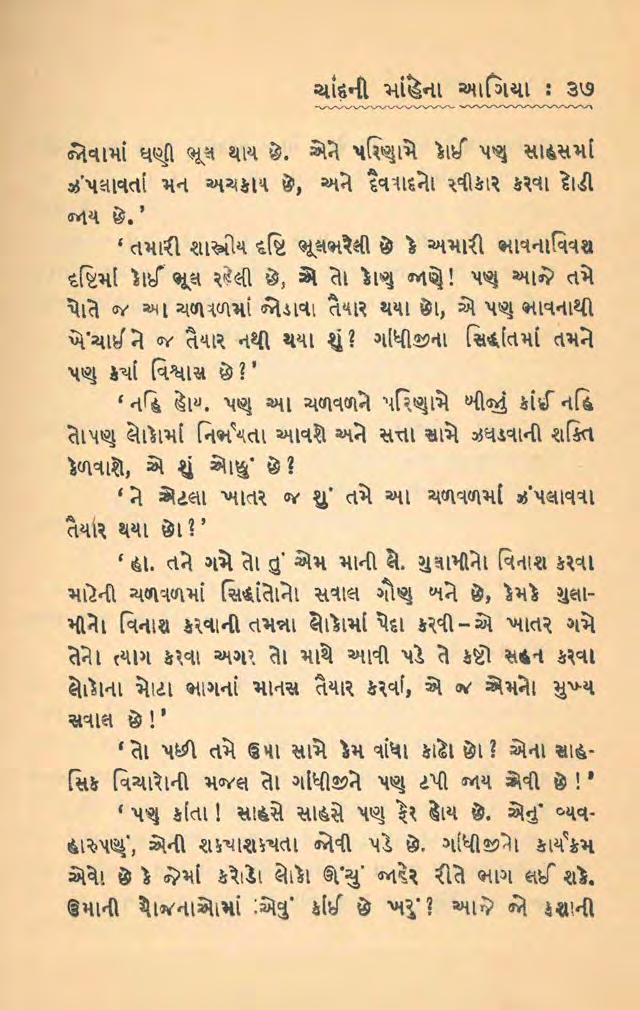 ચાંદની માંહેના આગિયા : ૩૭
જોવામાં ઘણી ભૂલ થાય છે. એને પરિણામે કોઈ પણ સાહસમાં
ઝંપલાવતાં મન અચકાય છે, અને દૈવવાદનો સ્વીકાર કરવા દોડી
જાય છે.’
‘તમારી શાસ્ત્રીય દૃષ્ટિ ભૂલભરેલી છે કે અમારી ભાવનાવિવશ
દૃષ્ટિમાં કોઈ ભૂલ રહેલી છે, એ તો કોણ જાણે! પણ આજે તમે
પોતે જ આ ચળવળમાં જોડાવા તૈયાર થયા છો, એ પણ ભાવનાથી
ખેંચાઈને જ તૈયાર નથી થયા શું? ગાંધીજીના સિદ્ધાંતમાં તમને
પણ ક્યાં વિશ્વાસ છે?’
‘નહિ હોય. પણ આ ચળવળને પરિણામે બીજું કાંઈ નહિ
તોપણ લોકોમાં નિર્ભયતા આવશે અને સત્તા સામે ઝઘડવાની શક્તિ
કેળવાશે, એ શું ઓછું છે?
‘ને એટલા ખાતર જ શું તમે આ ચળવળમાં ઝંપલાવવા
તૈયાર થયા છો?’
‘હા. તને ગમે તો તું એમ માની લે. ગુલામીનો વિનાશ કરવા
માટેની ચળવળમાં સિદ્ધાંતોનો સવાલ ગૌણ બને છે, કેમકે ગુલા-
મીનો વિનાશ કરવાની તમન્ના લોકોમાં પેદા કરવી – એ ખાતર ગમે
તેનો ત્યાગ કરવા અગર તો માથે આવી પડે તે કષ્ટો સહન કરવા
લોકોના મોટા ભાગનાં માનસ તૈયાર કરવાં, એ જ એમનો મુખ્ય
સવાલ છે!’
‘તો પછી તમે ઉષા સામે કેમ વાંધા કાઢો છો? એના સાહ-
સિક વિચારોની મજલ તો ગાંધીજીને પણ ટપી જાય એવી છે!’
‘પણ કાંતા! સાહસે સાહસે પણ ફેર હોય છે. એનું વ્યવ-
હારુપણું, એની શક્યાશક્યતા જોવી પડે છે. ગાંધીજીનો કાર્યક્રમ
એવો છે કે જેમાં કરોડો લોકો ઊંચું જાહેર રીતે ભાગ લઈ શકે.
ઉમાની યોજનાઓમાં એવું કાંઈ છે ખરું? આજે જો કશાની